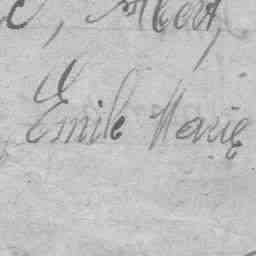 , Albert,
Emile Marie